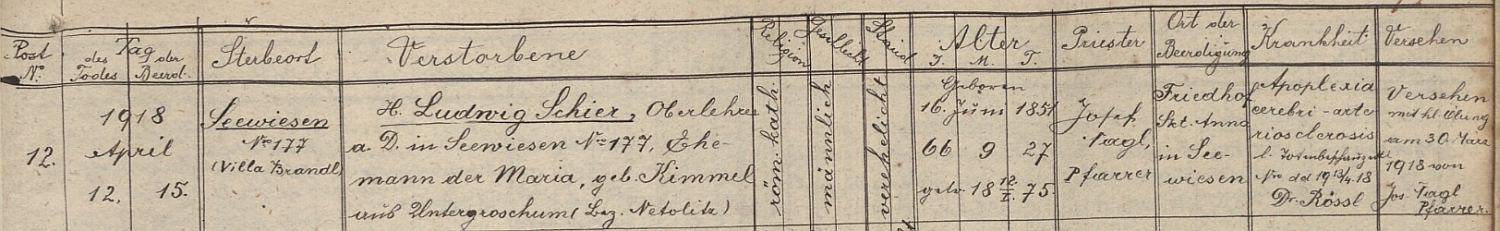 Post
No.
Tag
des der
Todes Beerd.
Sterbeort
Verstorbene
Religion
Geschlecht
Stand
Alter
J. M. T.
Priester
Ort der
Beerdigung
Krankheit
Versehen
12.
1918
April
12. 15.
Seewiesen
No 177
(Villa Brandl)
H. Ludwig Schier, Oberlehrer
a. D. in Seewiesen No 177, Ehe-
mann der Maria, geb. Kimmel
aus Untergroschum (Bez. Netolitz)
röm. kath.
männlich
verehelicht
Geboren
16. Juni 1851
66 9 27
getr. 18 12/I. 75.
Josef
Nagl,
Pfarrer
Friedhof
Skt. Anna
in See-
wiesen
Apoplexia
cerebri - arte
riosclerosis
l. Totenbeschauzettel
No dd 13/4.18
Dr. Rössl
Versehen
mit hl. Ölung
am 30. März
1918 von
Jos. Nagl
Pfarrer.